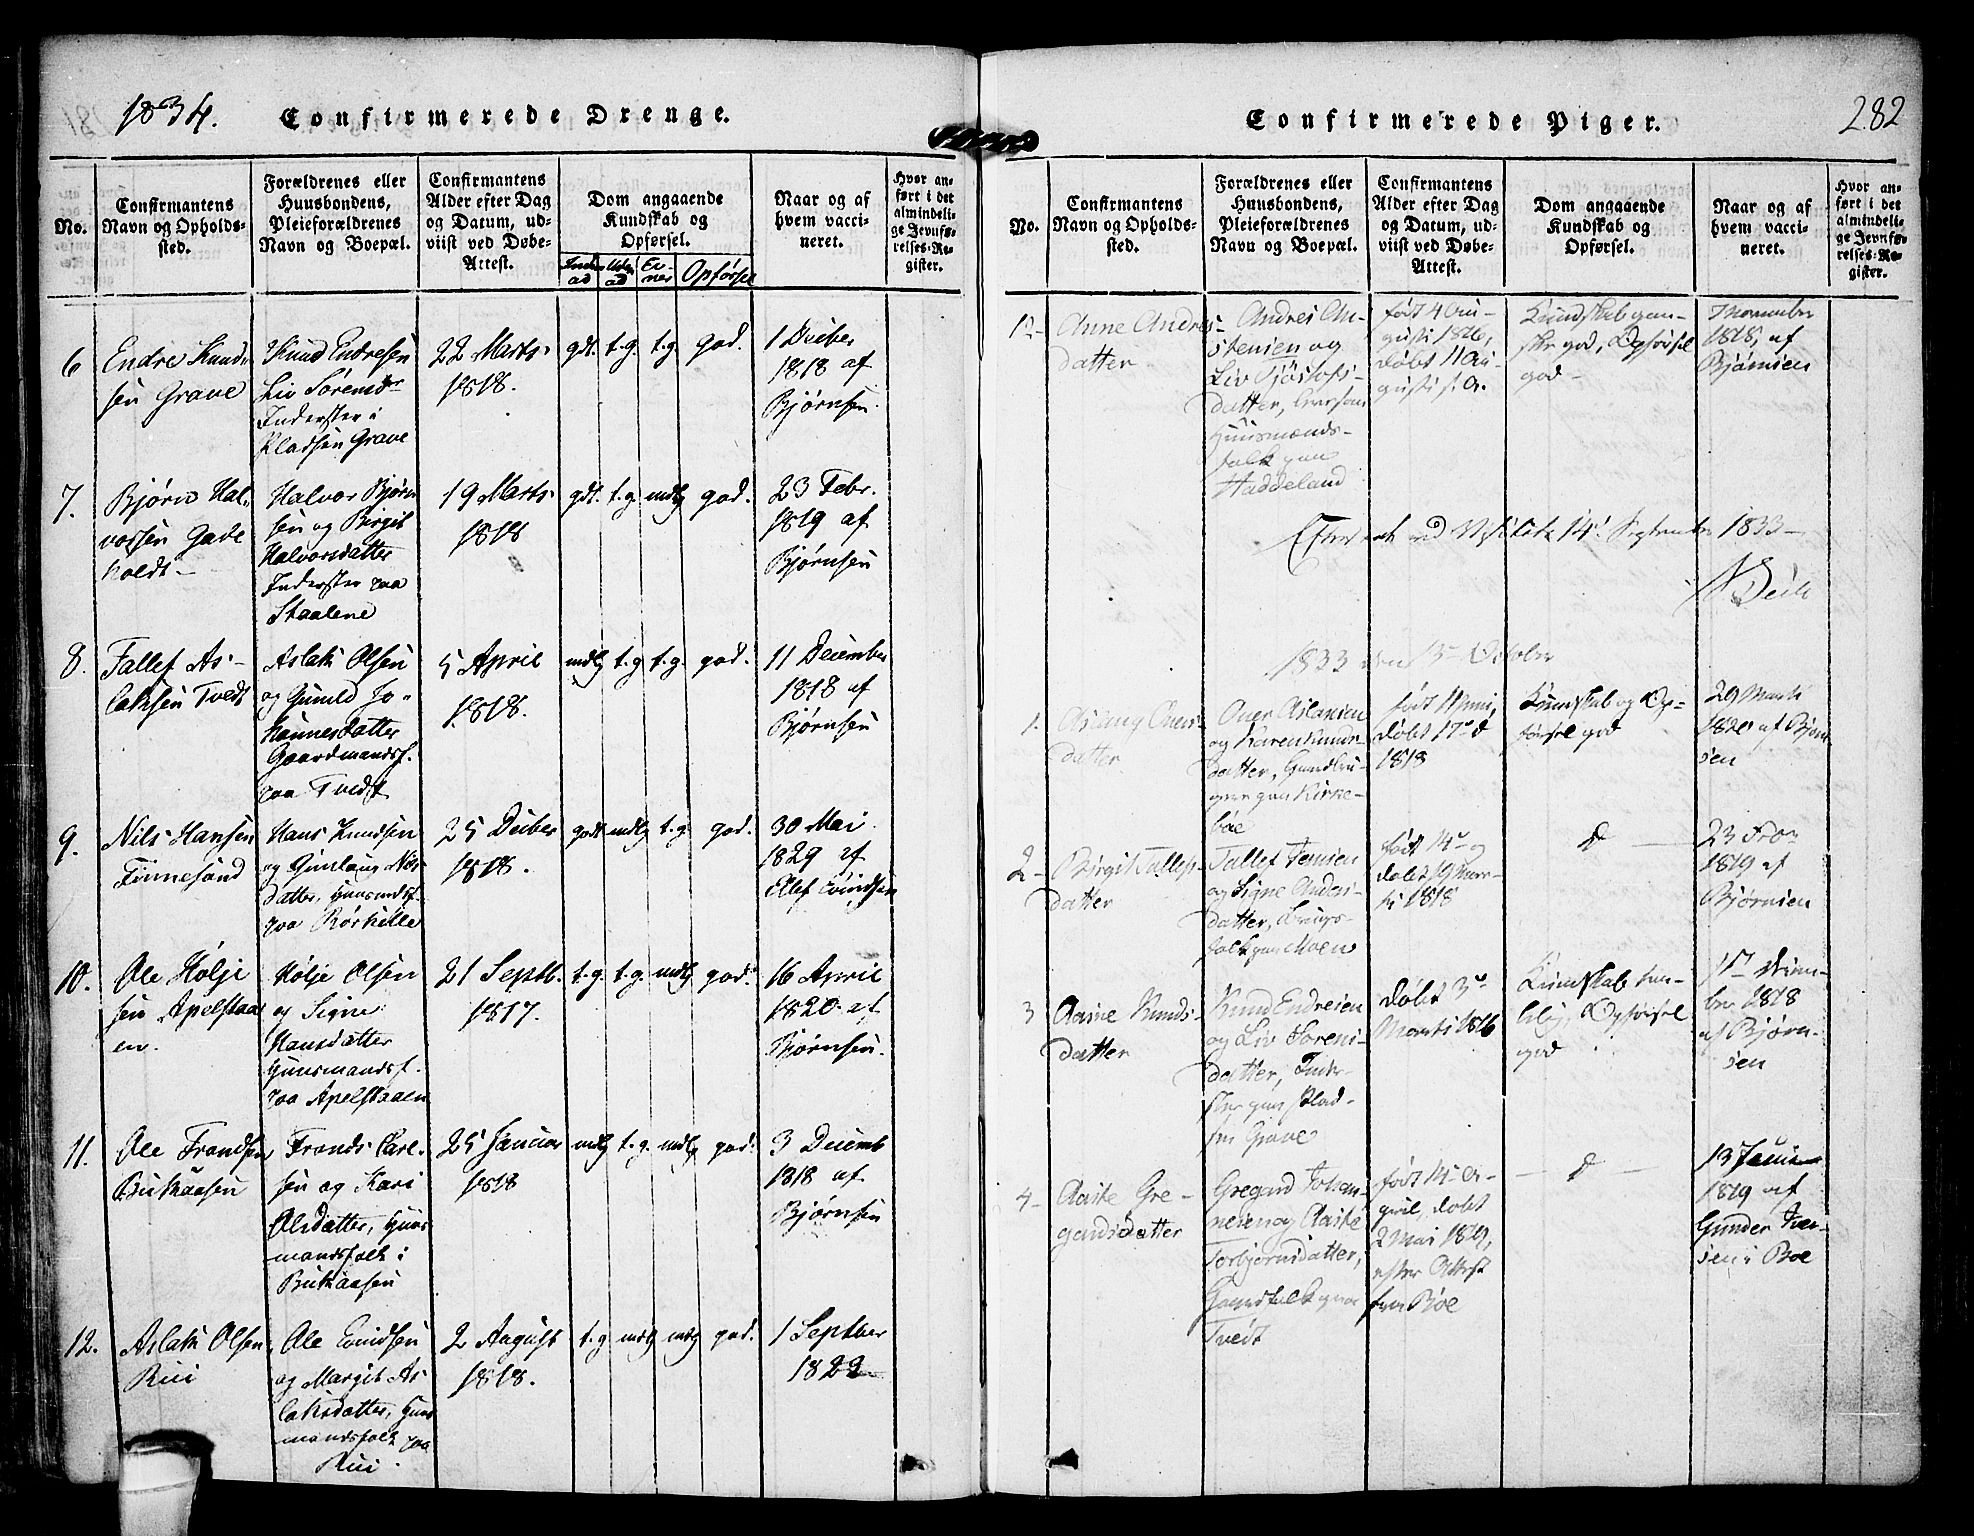 1834.
Confirmerede Drenge.
No.
Confirmantens
Navn og Opholds-
sted.
Forældrenes eller
Huusbondens,
Pleieforældrenes
Navn og Boepæl.
Confirmantens
Alder efter Dag
og Datum, ud-
viist ved Døbe-
Attest.
Dom angaaende
Kundskab og
Opførsel.
Opførsel
Naar og af
hvem vacci-
neret.
Hvor an-
ført i det
almindeli-
ge Jevnfø-
relses-Re-
gister.
6
Endre Knud-
sen Grave
Knud Endresen
Liv Sørensdr
Inderster i
Pladsen Grave
22 Marts
1818.
gdt. t.g. t.g. god.
1 Decber
1818 af
Bjørnsen.
7.
Bjørn Hal-
vorsen Gade
holdt
Halvor Bjørn
sen og Birgit
Halvorsdatter
Inderster paa
Staalene
19 Marts
1818
gdt. t.g. mdlg god.
23 Febr.
1819 af
Bjørnsen
8.
Tallef As-
laksen Tvedt
Aslak Olsen
og Gunild Jo-
hannesdatter
Gaardmandsf.
paa Tvedt
5 April
1818.
mdlg t.g. t.g. god.
11 December
1818 af
Bjørnsen
9.
Nils Hansen
Finnesand
Hans Knudsen
og Gunlaug Nils
datter, Huusmdsf.
paa Rørkille
25 Decber
1818.
godt mdlg t.g. god.
30 Mai
1829 af
Ellef Evindsen
10.
Ole Holje
sen Apelstaa
en.
Holje Olsen
og Signe
Hansdatter
Huusmandsf.
paa Apelstaaen
21 Septb.
1817.
t.g. t.g. mdlg god.
16 April
1820 af
Bjørnsen.
11.
Ole Frandsen
Bukaasen
Frands Carl-
sen og Kari
Olsdatter, Huus
mandsfolk i
Bukaasen
25 Januar
1818
mdlg t.g. mdlg god.
3 Decemb
1818 af
Bjørnsen
12.
Aslak Olsen
Rui
Ole Evindsen
og Margit As
laksdatter, Huus
mandsfolk paa
Rui.
2 August
1818.
t.g mdlg mdlg god.
1 Septber
1822
Confirmerede Piger.
282
No.
Confirmantens
Navn og Opholds-
sted.
Forældrenes eller
Huusbondens,
Pleieforældrenes
Navn og Boepæl.
Confirmantens
Alder efter Dag
og Datum, ud-
viist ved Døbe-
Attest.
Dom angaaende
Kundskab og
Opførsel.
Naar og af
hvem vacci-
neret.
Hvor an-
ført i det
almindeli-
ge Jevnfø-
relses-Re-
gister.
12-
Anne Andres-
datter
Andres An-
stensen og
Liv
datter,
Huusmænds-
folk paa
Haddeland
født 4 Au-
gusti 1816,
døbt 11 Au-
gusti s. A.
Kundskab gan-
ske god, Opførsel
god
November
1818, af
Bjørnsen
ved Visitats 14 September 1833
1833 den 13 October
1.
datter
Oner Aslaksen
og Karen Knuds-
datter, Gaardbru-
gere paa Kirke-
bøe
født 11 Juni,
døbt 17de d
1818
Kundskab og Op-
førsel god
29 Marti
1820 af Bjørn
sen
2-
Birgit Tallefs-
datter
Tallef Jensen
og Signe Anders-
datter, Brugs-
folk paa Moen
født 14de og
døbt 19 Mar-
ti 1818
23
1819 af
Bjørnsen
3
Aasne Knuds-
datter
Knud Endresen
og Liv Sørens-
datter, Inder-
ster paa Plad-
sen Grave
Døbt 3de
Marti 1816
Kundskab tem-
lig, Opførsel
god
17 Decem-
ber 1818
af Bjørn-
sen
4-
Aaste Gre-
gardsdatter
Gregard Johan-
nesen og Aaste
Torbjørnsdatter,
Gaardfolk paa
Tveit
født 14 A-
pril, døbt
2 Mai 1819,
efter Attest
fra Bøe
13 Juni
1819 af
Gunder Iver-
sen i Bøe